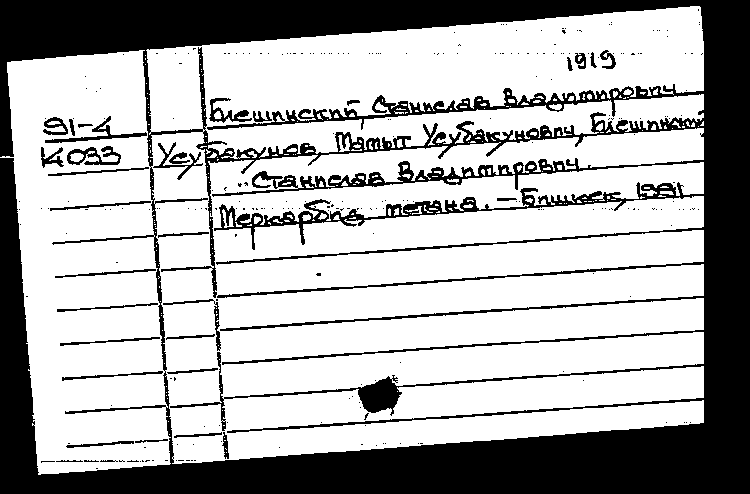 1919
Блешинский, Станислав Владимирович
91-4
14033 Усубакунов, Мамыт Усубакунович, Блешинский
Станислав Владимирович.
метана. — Бишкек, 1991